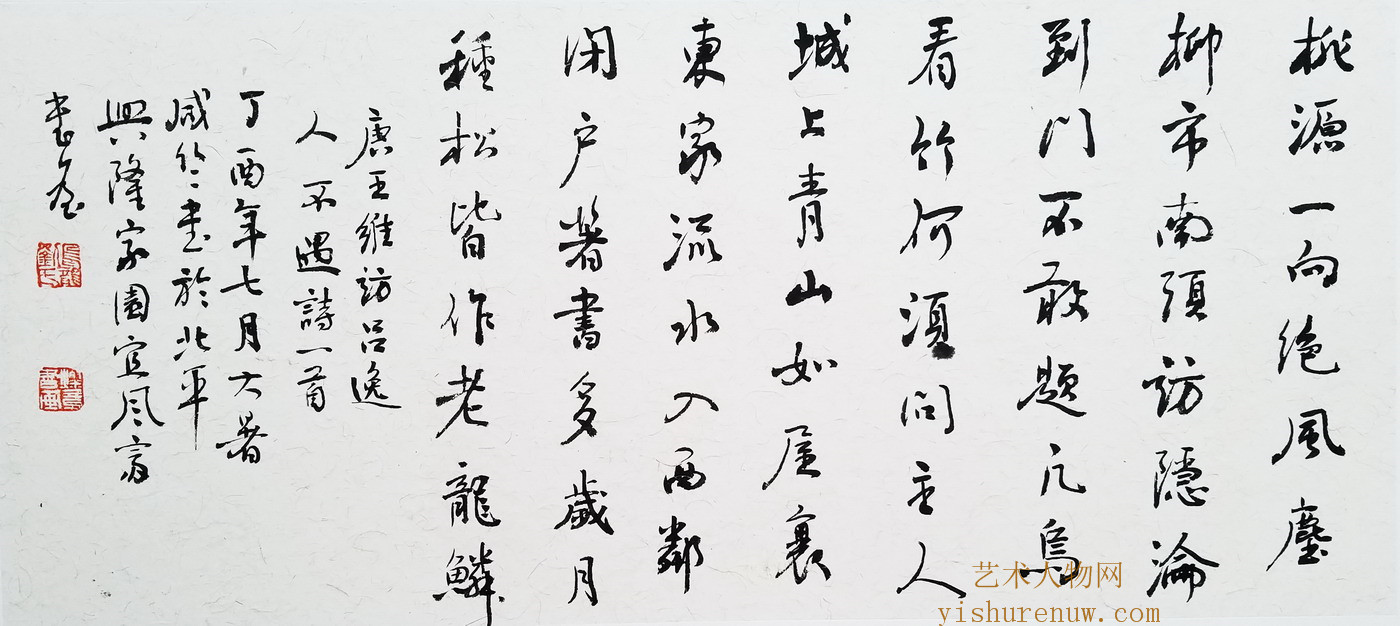 桃源一向絶風塵
柳市南頭訪隱淪
到門不敢題凡鳥
看竹何須問主人
城上青山如屋裏
東家流水入西鄰
閉户著書多歲月
種松皆作老龍鱗
唐王維訪吕逸
人不遇詩一首
丁酉年七月大暑
咸竹書於北平
興隆家園宜風齋
艺术人物网
yishurenuw.com